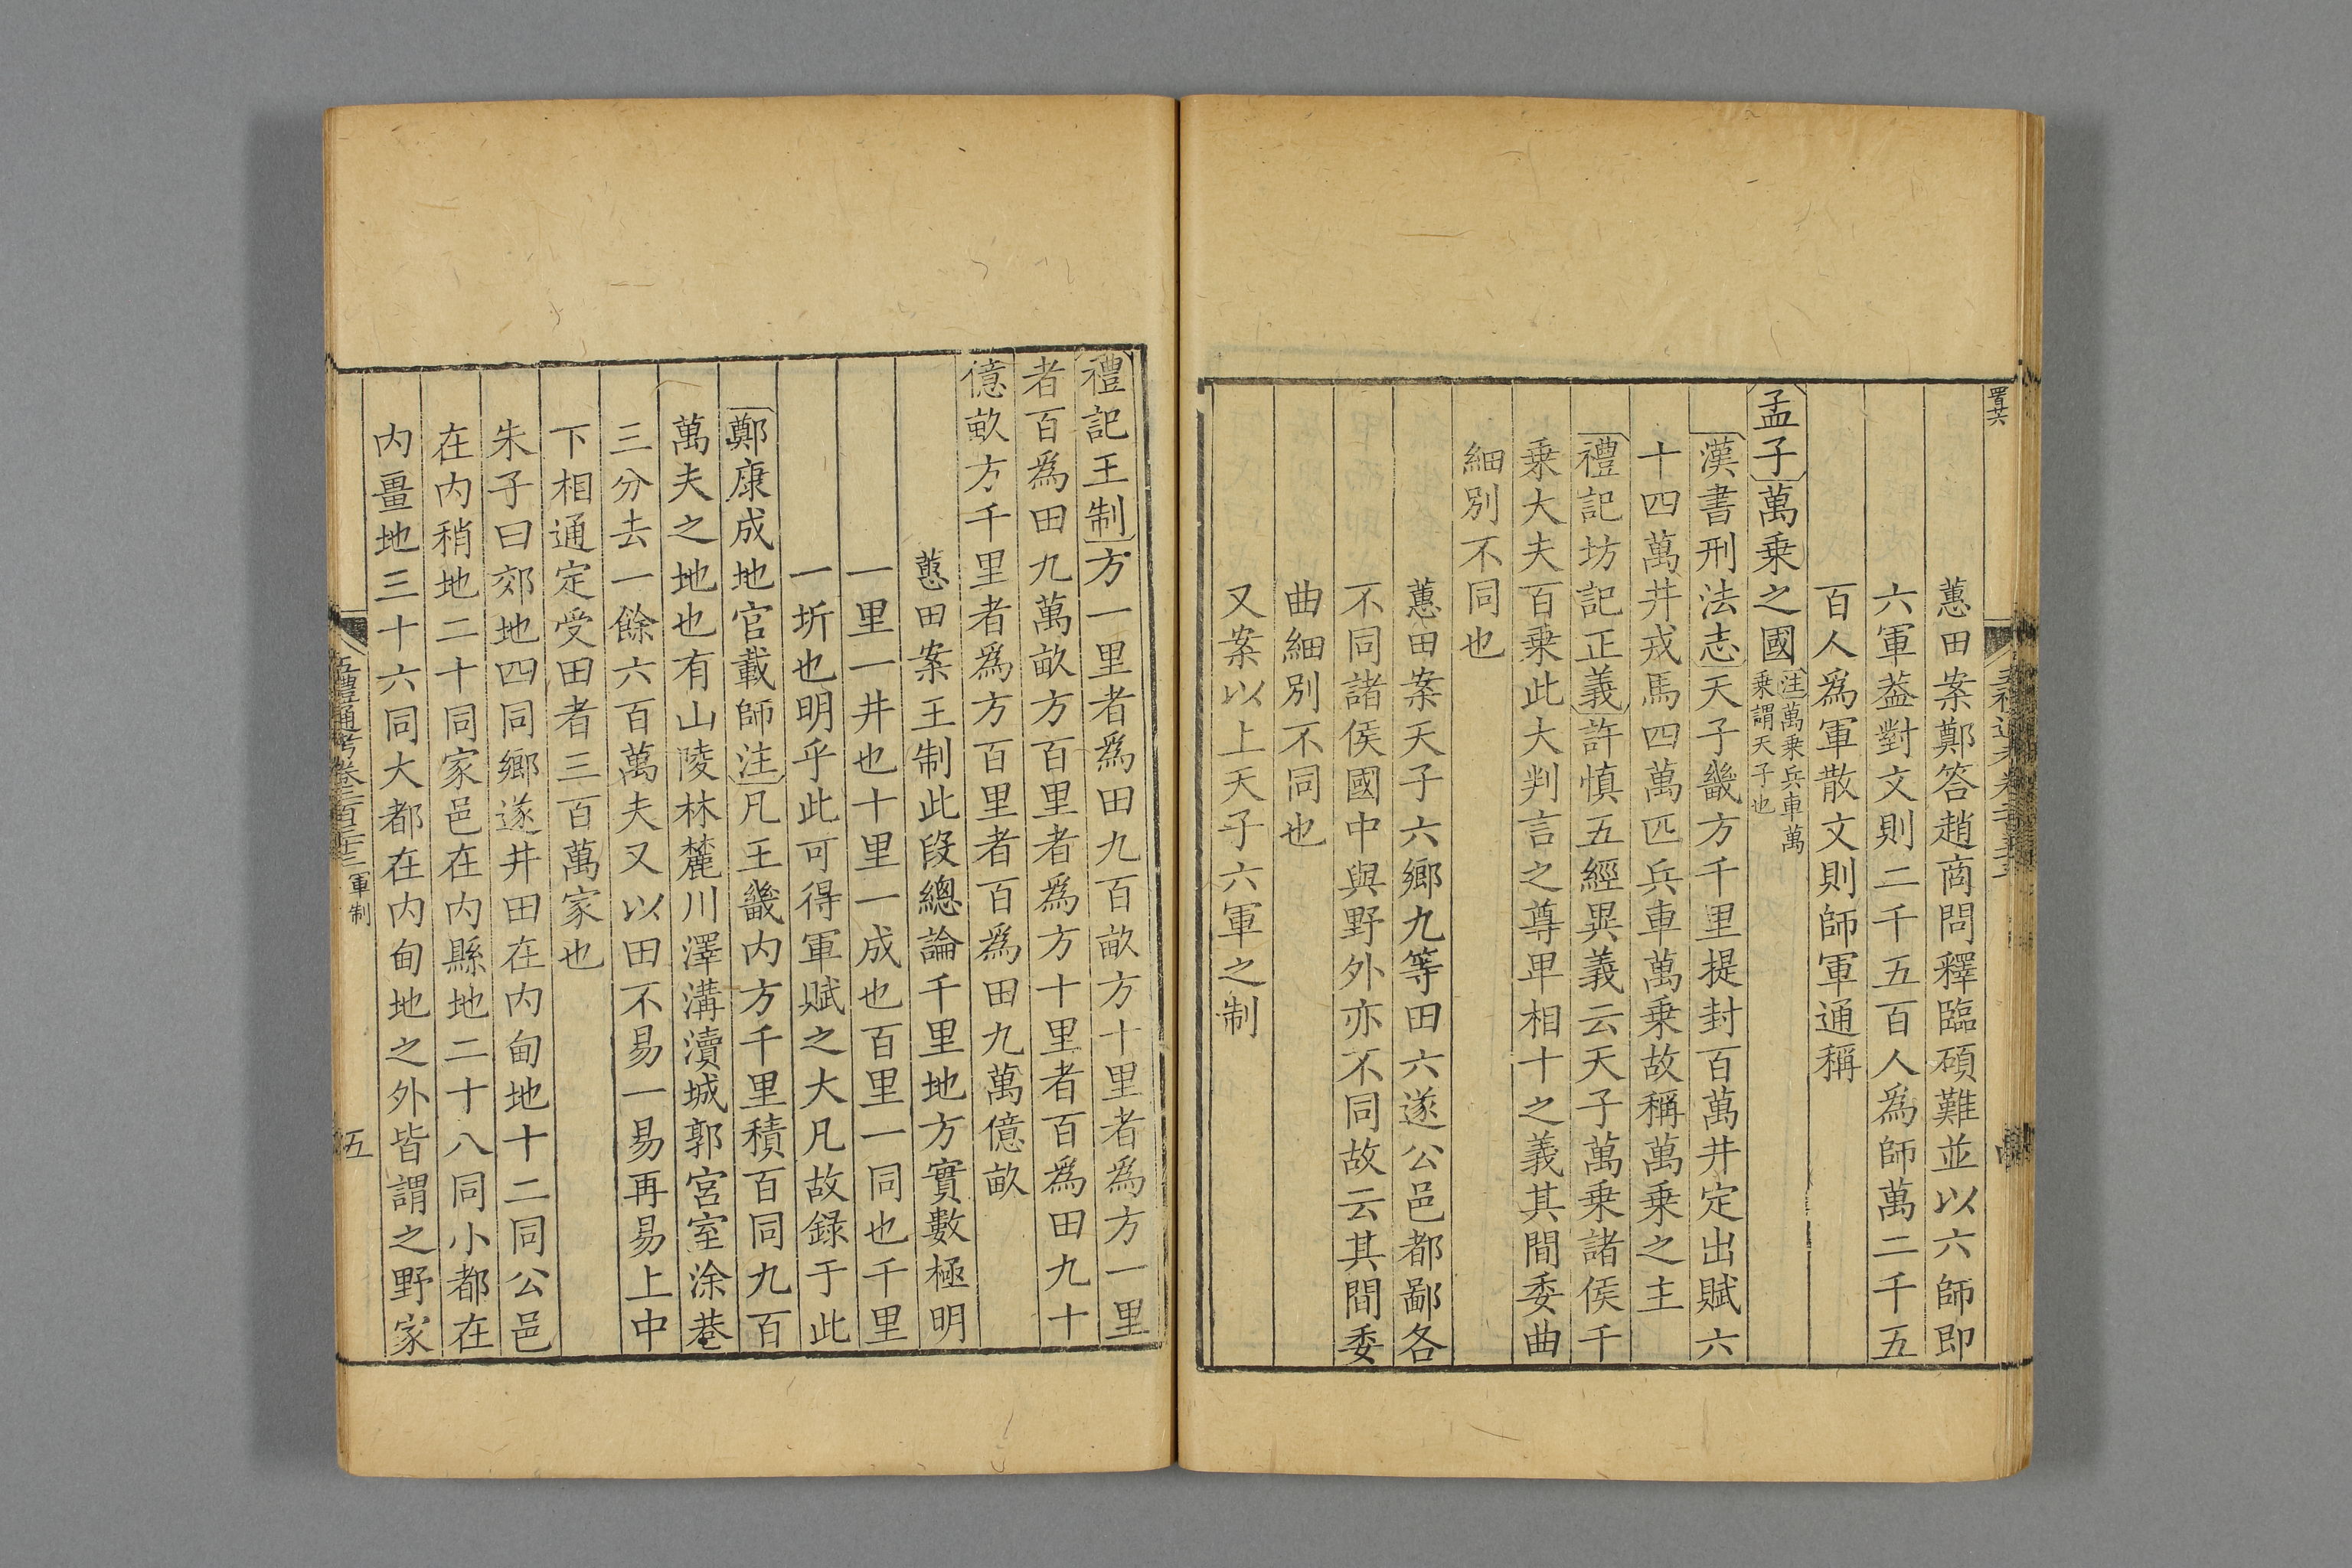 蕙田案鄭答趙商問釋臨碩難並以六師即
六軍葢對文則二千五百人為師萬二千五
百人為軍散文則師軍通稱
孟子萬乗之國注萬乗兵車萬
乗謂天子也
漢書刑法志天子畿方千里提封百萬井定出賦六
十四萬井戎馬四萬匹兵車萬乗故稱萬乗之主
禮記坊記正義許慎五經異義云天子萬乗諸侯千
乗大夫百乗此大判言之尊卑相十之義其間委曲
細別不同也
蕙田案天子六鄉九等田六遂公邑都鄙各
不同諸侯國中與野外亦不同故云其間委
曲細別不同也
又案以上天子六軍之制
禮記王制方一里者為田九百畝方十里者為方一里
者百為田九萬畝方百里者為方十里者百為田九十
億畝方千里者為方百里者百為田九萬億畝
蕙田案王制此段總論千里地方實數極明
一里一井也十里一成也百里一同也千里
一圻也明乎此可得軍賦之大凡故録于此
鄭康成地官載師注凡王畿内方千里積百同九百
萬夫之地也有山陵林麓川澤溝瀆城郭宮室涂巷
三分去一餘六百萬夫又以田不易一易再易上中
下相通定受田者三百萬家也
朱子曰郊地四同鄉遂井田在内甸地十二同公邑
在内稍地二十同家邑在内縣地二十八同小都在
内畺地三十六同大都在内甸地之外皆謂之野家
五禮通考卷二百三十三 軍制
五